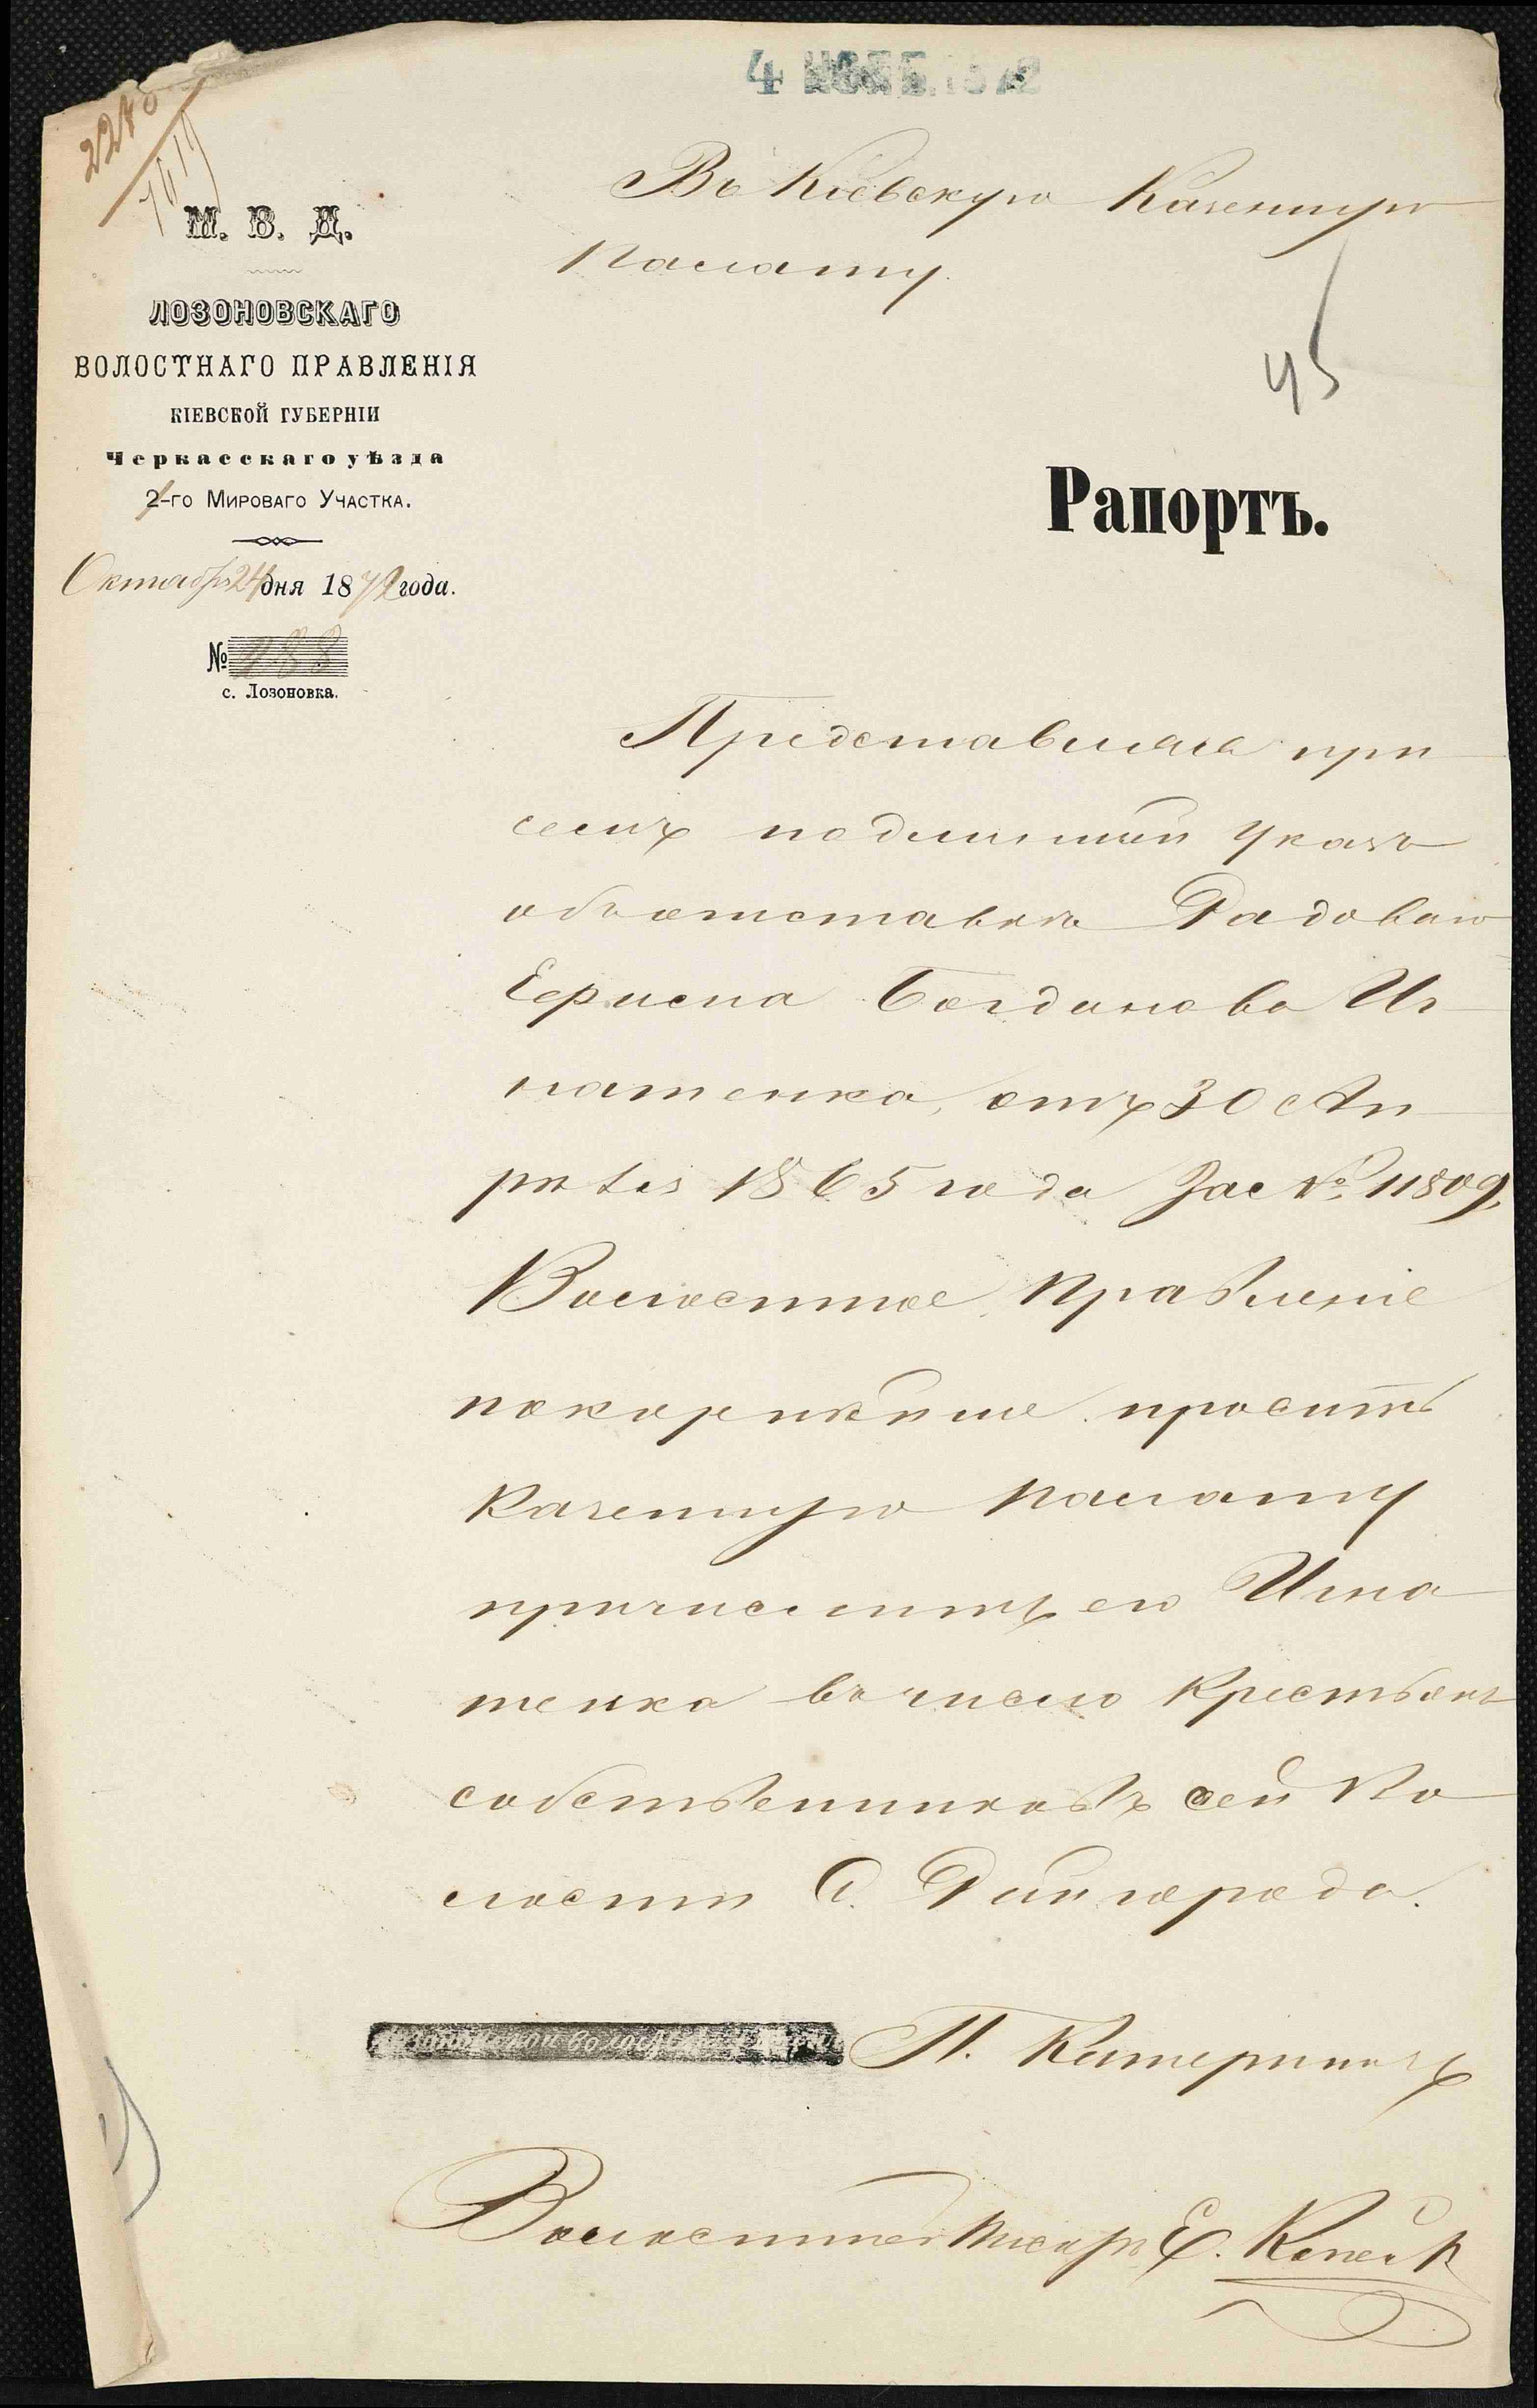 4 НОЯБ. 1872
2240
В Кіевскую Казенную
Палату.
45
М. В. Д.
ЛОЗОНОВСКАГО
ВОЛОСТНАГО ПРАВЛЕНІЯ
КІЕВСКОЙ ГУБЕРНІИ
Черкасскаго уѣзда
2-го Мироваго Участка.
Октября 24 дня 1872 года.
№ 288
с. Лозоновка.
Рапортъ.
Представляя при
семъ подлинный Указъ
объ отставкѣ Рядоваго
Богданова Иг
натенка, отъ 30 Ап
рѣля 1865 года За № 11809,
Волостное Правленіе
покорнѣйше проситъ
Казенную Палату
причислить его Игна
тенка въ число Крестьянъ
собственниковъ сей Во
лости С. Райгорода.
П. Катеринич
Волостной Писарь Е.